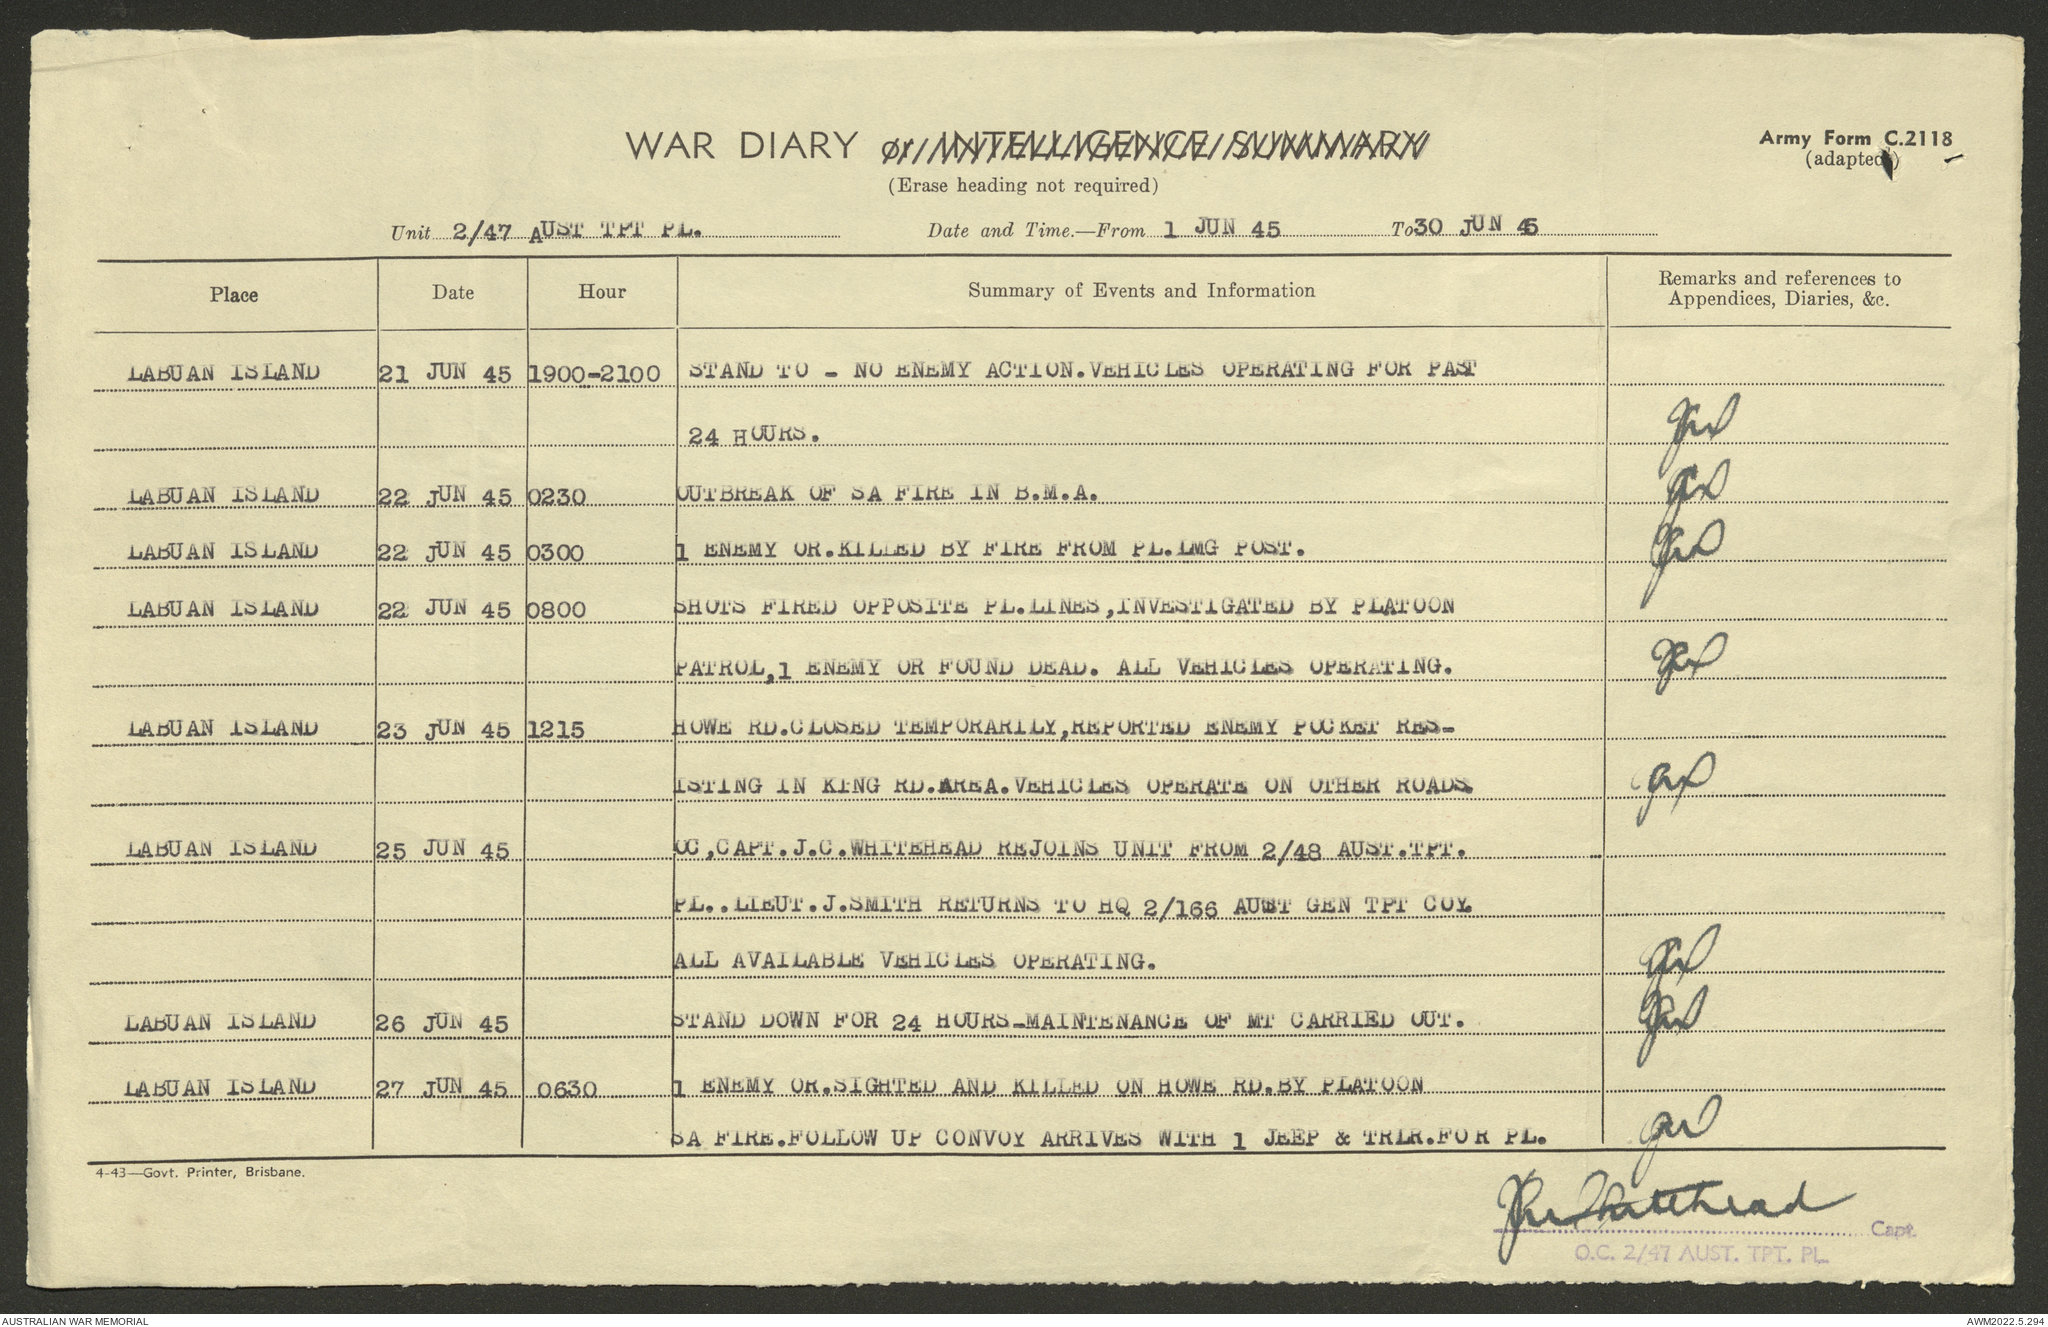 WAR DIARY or INTELLIGENCE SUMMARY
Army Form C.2118
(adapted)
(Erase heading not required)
Unit 2/47 AUST TPT PL. Date and Time.—From 1 JUN 45 To 30 JUN 45
Place Date Hour Summary of Events and Information Remarks and references to
Appendices, Diaries, &c.
LABUAN ISLAND 21 JUN 45 1900-2100 STAND TO - NO ENEMY ACTION.VEHICLES OPERATING FOR PAST
24 HOURS.
LABUAN ISLAND 22 JUN 45 0230 OUTBREAK OF SA FIRE IN B.M.A.
LABUAN ISLAND 22 JUN 45 0300 1 ENEMY OR.KILLED BY FIRE FROM PL.LMG POST.
LABUAN ISLAND 22 JUN 45 0800 SHOTS FIRED OPPOSITE PL.LINES,INVESTIGATED BY PLATOON
PATROL,1 ENEMY OR FOUND DEAD. ALL VEHICLES OPERATING.
LABUAN ISLAND 23 JUN 45 1215 HOWE RD.CLOSED TEMPORARILY,REPORTED ENEMY POCKET RES-
ISTING IN KING RD.AREA.VEHICLES OPERATE ON OTHER ROADS.
LABUAN ISLAND 25 JUN 45 OC,CAPT.J.C.WHITEHEAD REJOINS UNIT FROM 2/48 AUST.TPT.
PL..LIEUT.J.SMITH RETURNS TO HQ 2/166 AUST GEN TPT COY.
ALL AVAILABLE VEHICLES OPERATING.
LABUAN ISLAND 26 JUN 45 STAND DOWN FOR 24 HOURS-MAINTENANCE OF MT CARRIED OUT.
LABUAN ISLAND 27 JUN 45 0630 1 ENEMY OR.SIGHTED AND KILLED ON HOWE RD.BY PLATOON
SA FIRE.FOLLOW UP CONVOY ARRIVES WITH 1 JEEP & TRLR.FOR PL.
4-43—Govt. Printer, Brisbane.
Whitehead
Capt.
O.C. 2/47 AUST. TPT. PL.
AUSTRALIAN WAR MEMORIAL AWM2022.5.294